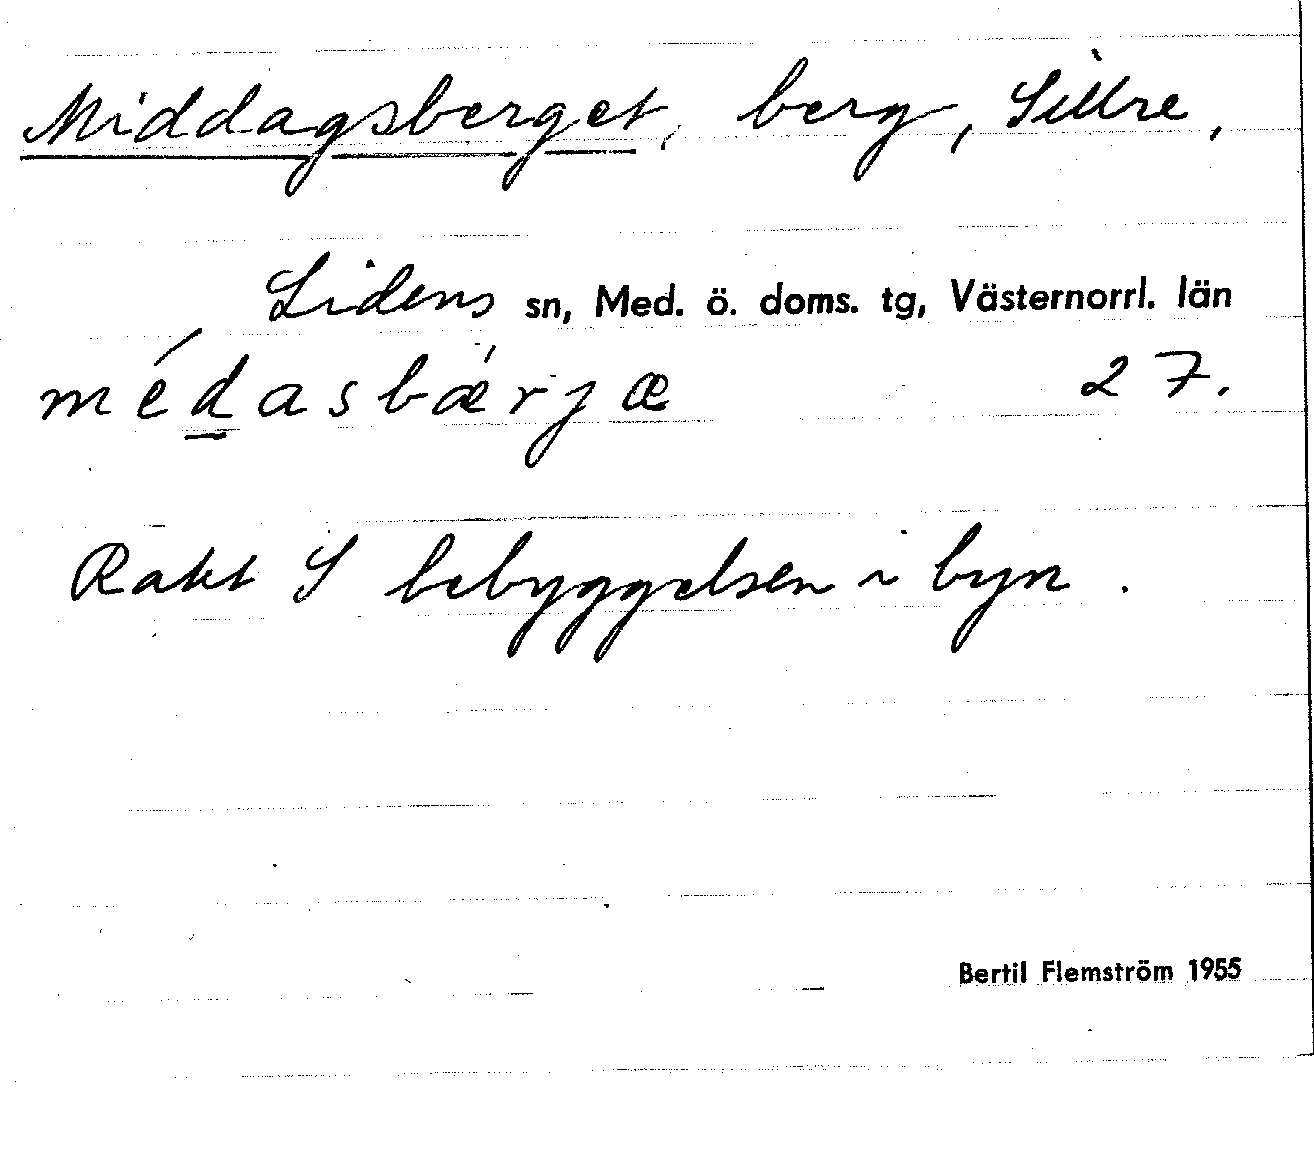 Middagsberget, berg, Sillre,
Lidens sn, Med. ö. doms. tg, Västernorrl. län
médasbǽrjæ 27.
Rakt S bebyggelsen i byn.
Bertil Flemström 1955